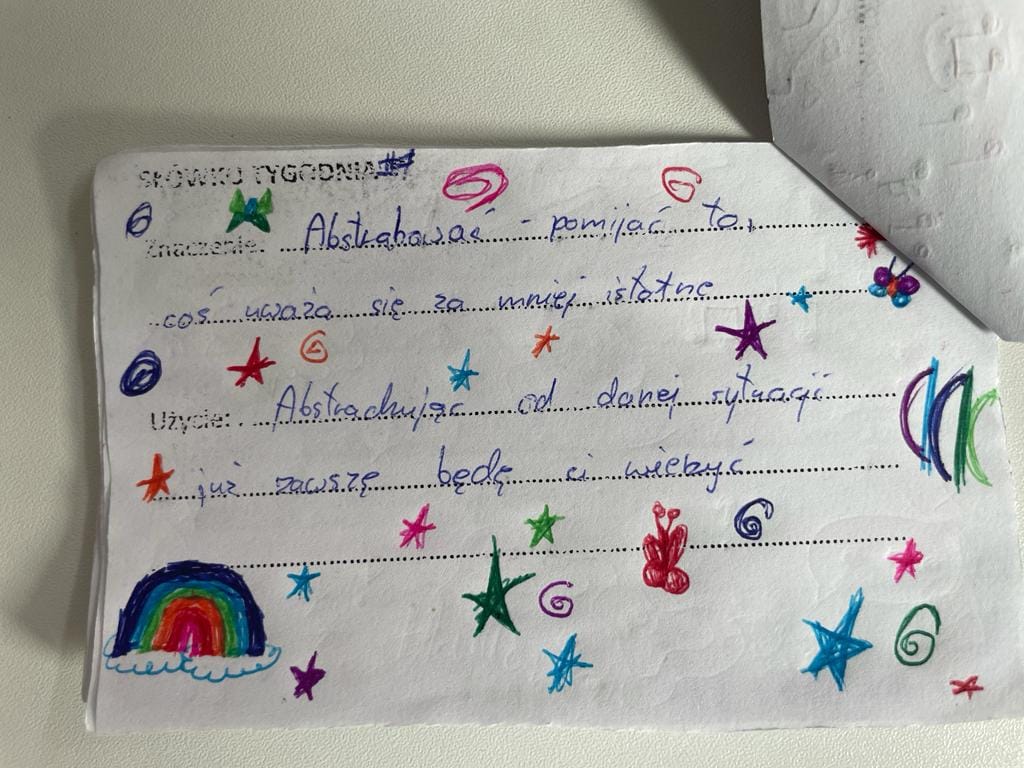 SŁÓWKO TYGODNIA #7
Znaczenie: Abstrahować - pomijać to,
coś uważa się za mniej istotne
Użycie: Abstrachując od danej sytuacji
już zawszę będę ci wierzyć